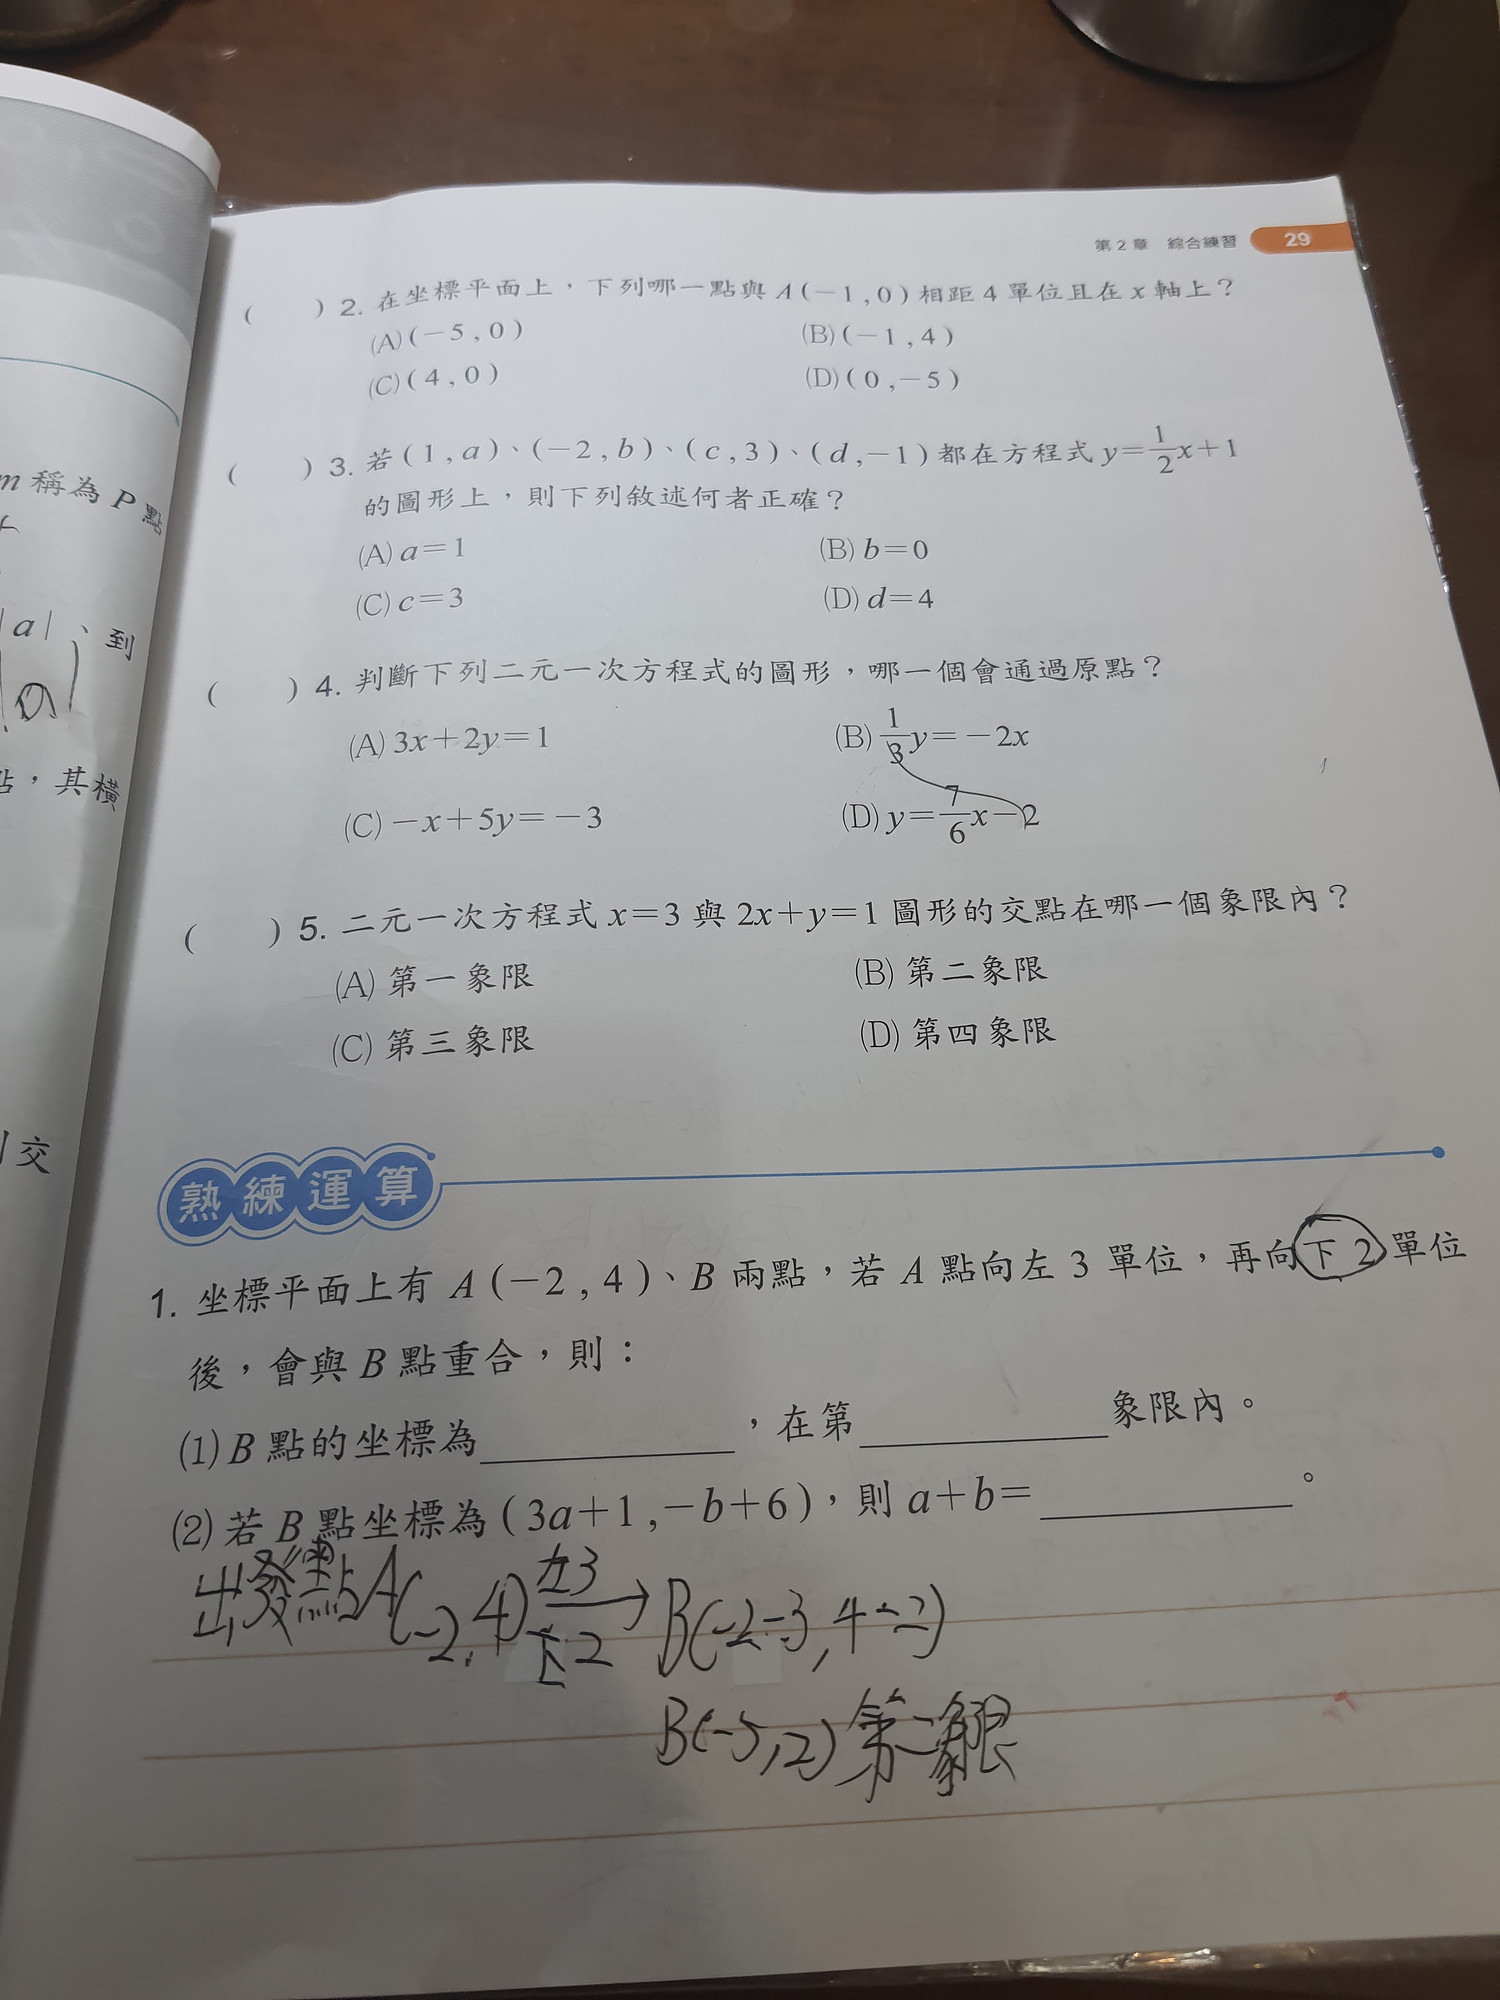 第2章 綜合練習 29
m 稱為 P 點
|a|、到
|a|
點，其橫
交
( ) 2. 在坐標平面上，下列哪一點與 A(−1,0) 相距 4 單位且在 x 軸上？
(A)(−5,0) (B)(−1,4)
(C)(4,0) (D)(0,−5)
( ) 3. 若(1,a)、(−2,b)、(c,3)、(d,−1)都在方程式 y=1/2x+1
的圖形上，則下列敘述何者正確？
(A) a=1 (B) b=0
(C) c=3 (D) d=4
( ) 4. 判斷下列二元一次方程式的圖形，哪一個會通過原點？
(A) 3x+2y=1 (B) 1/3y=−2x
(C) −x+5y=−3 (D) y=7/6x−2
( ) 5. 二元一次方程式 x=3 與 2x+y=1 圖形的交點在哪一個象限內？
(A) 第一象限 (B) 第二象限
(C) 第三象限 (D) 第四象限
熟練運算
1. 坐標平面上有 A(−2,4)、B 兩點，若 A 點向左 3 單位，再向下 2 單位
後，會與 B 點重合，則：
(1) B 點的坐標為________，在第________象限內。
(2) 若 B 點坐標為(3a+1,−b+6)，則 a+b=________。
出發點A(-2,4) 左3 → 下2 B(-2-3,4-2)
B(-5,2) 第二象限